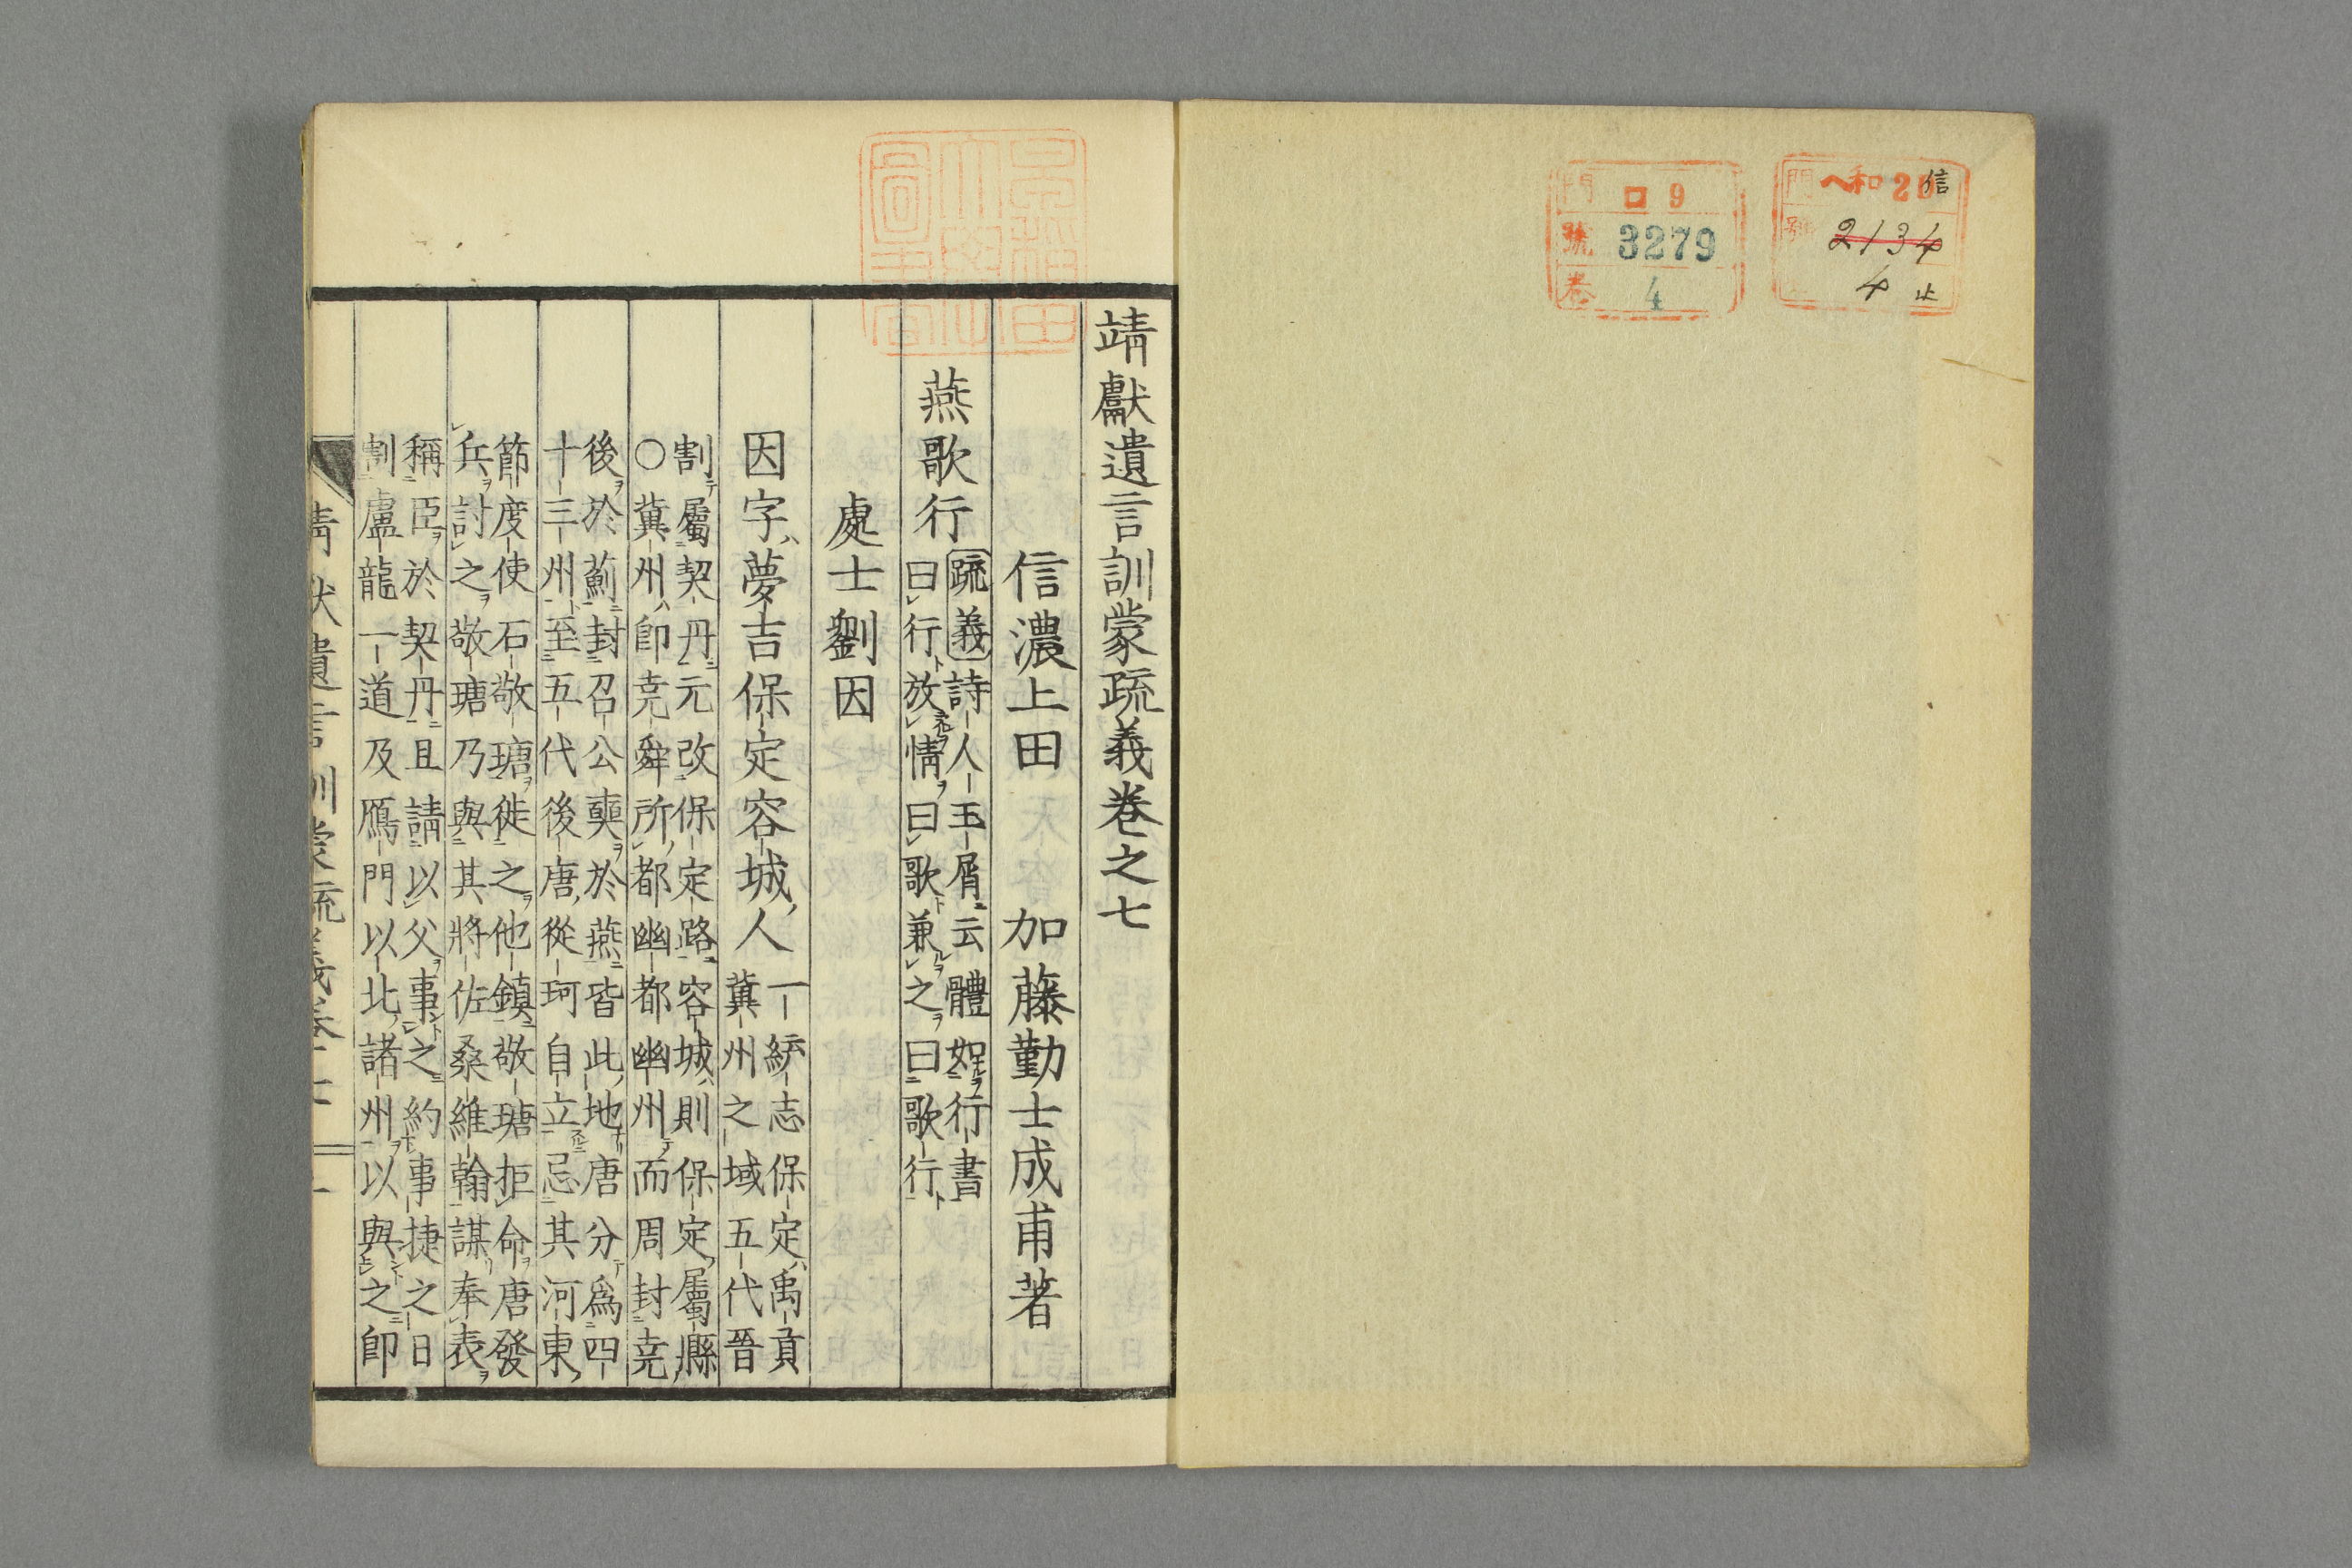 門 ヘ和 20 信
號 2134
4 止
門 ロ 9
號 3279
卷 4
靖獻遺言訓蒙疏義卷之七
信濃上田 加藤勤士成甫著
燕歌行 疏義 詩人玉屑云體如行書
曰行放情曰歌兼之曰歌行
處士劉因
因字夢吉保定容城人 一統志保定禹貢
冀州之域五代晉
割屬契丹元改保定路容城則保定屬縣
○冀州卽堯舜所都幽都幽州而周封堯
後於薊封召公奭於燕皆此地唐分爲四
十三州至五代後唐從珂自立忌其河東
節度使石敬瑭徙之他鎮敬瑭拒命唐發
兵討之敬瑭乃與其將佐桑維翰謀奉表
稱臣於契丹且請以父事之約事捷之日
割盧龍一道及鴈門以北諸州以與之卽